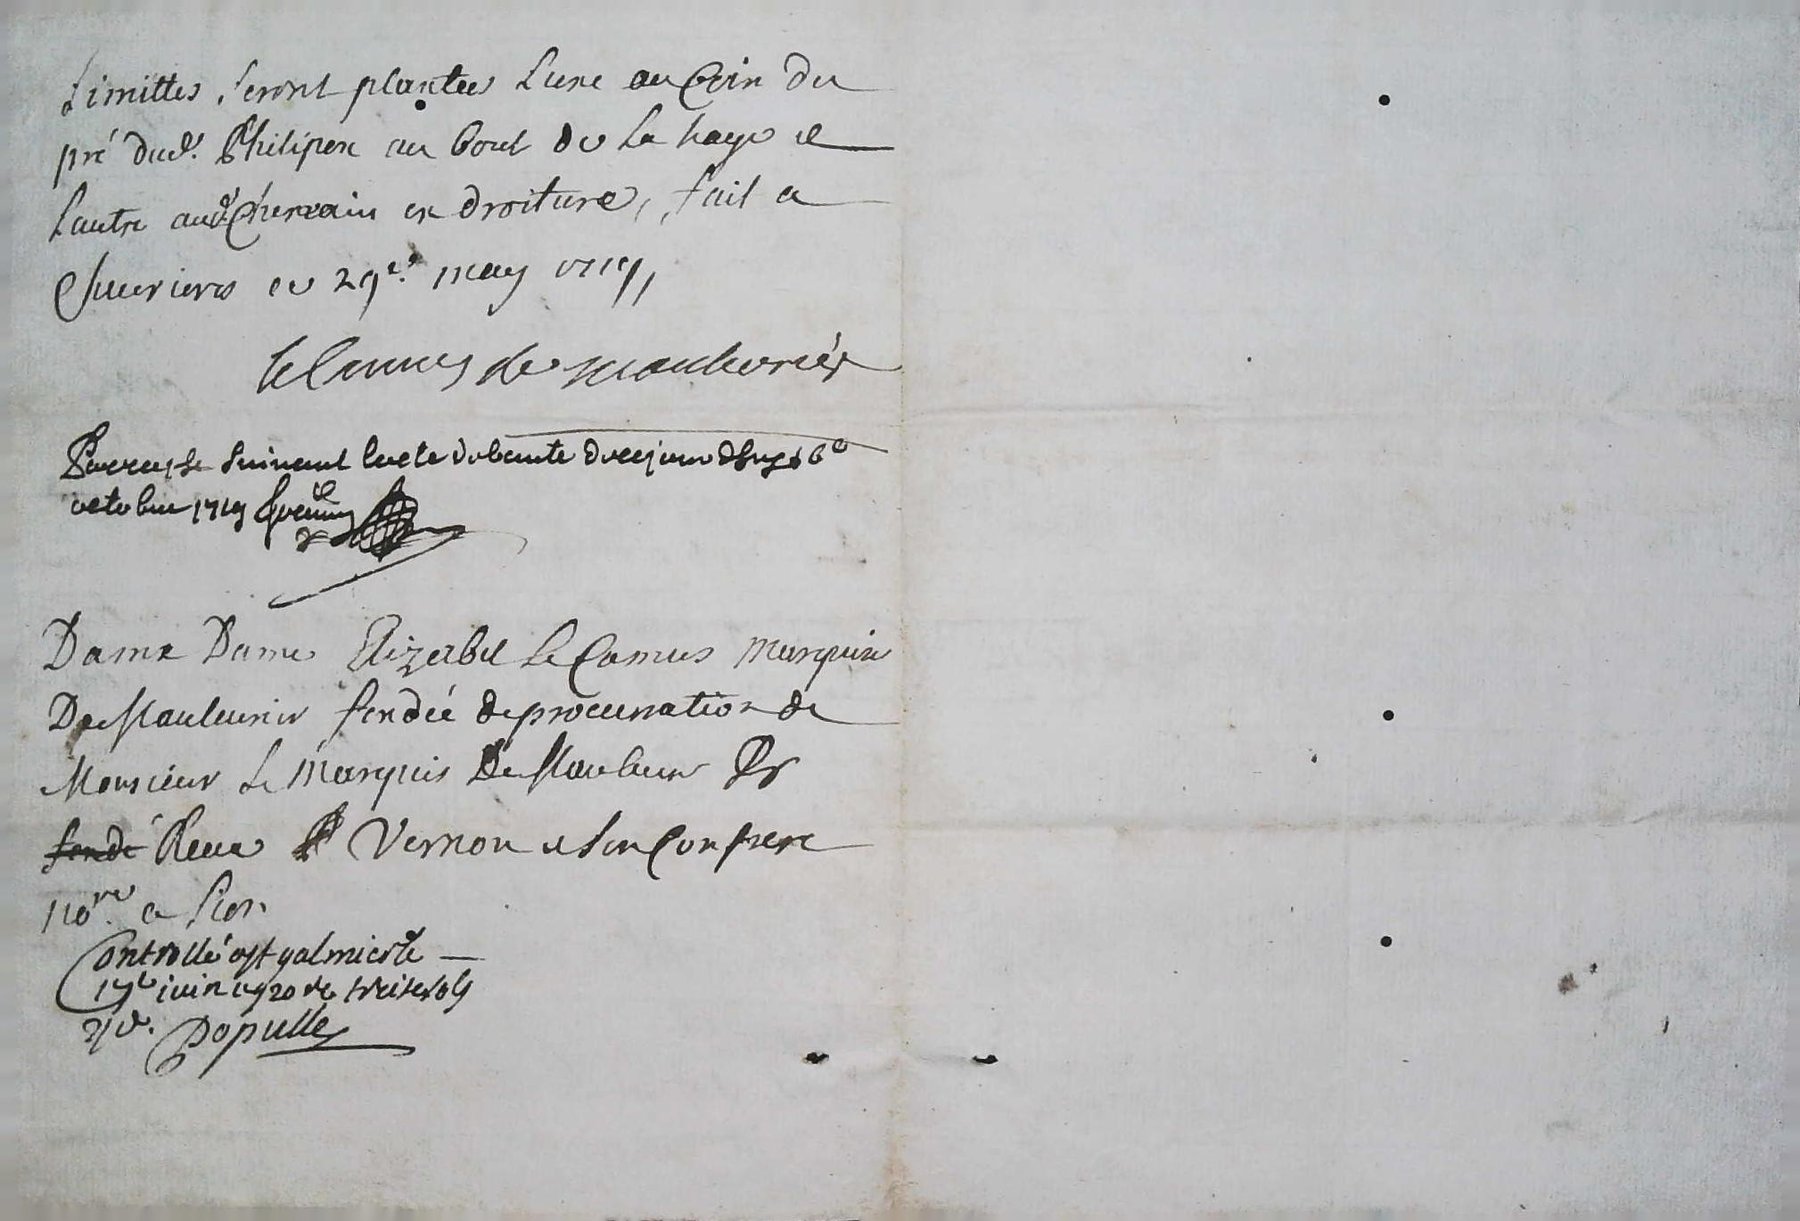 Limittes seront plantees Lune au Coin du
pré dud. Philipon au bout de La haye et
Lautre aud. Chemain en droiture, fait a
Chuerieres ce 29e. may 1719
le Camus de maulevrier
Parraphé suivant lacte de vante de cejourdhuy 6e
octobre 1719
Dame Dame Elizabet Le Camus Marquise
De Maulevrier fondée de procuration de
Monsieur Le Marquis De Maulevrier Pr
fondé Reçue Pr Vernon et son Confrere
nore. a Lion
Controllé a st galmier le
17e juin 1720 re treise sols
Populle